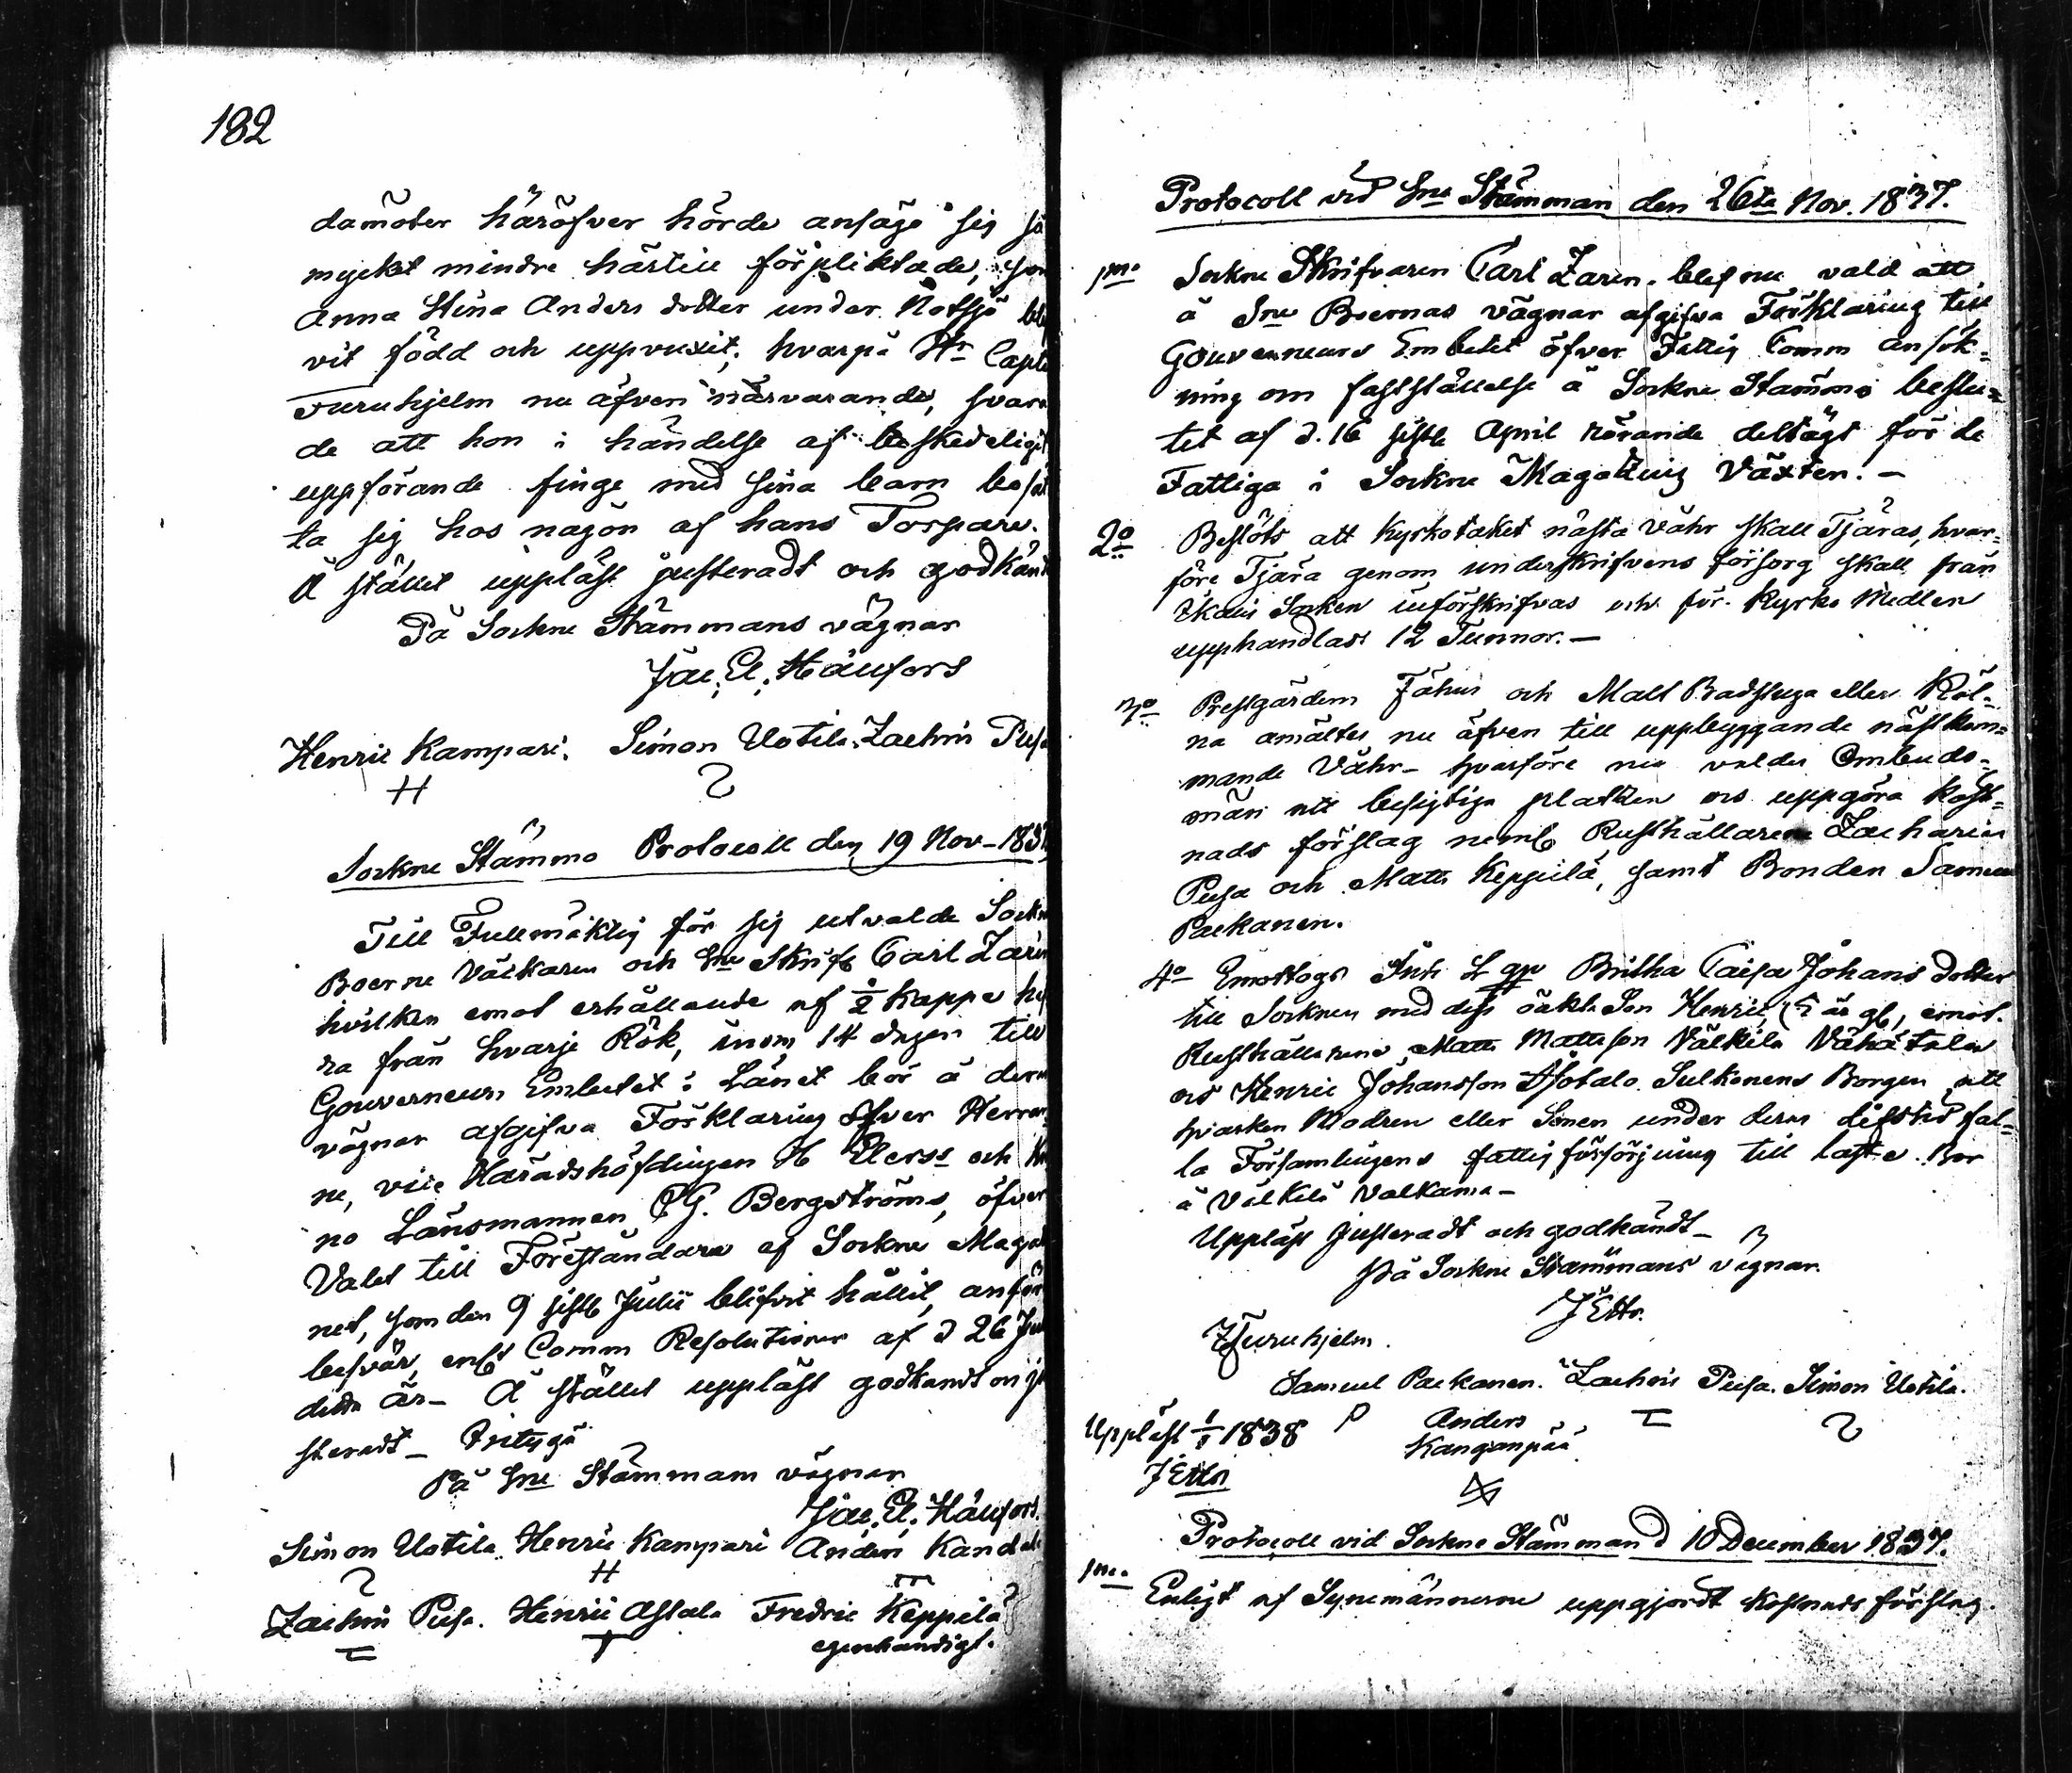 182
damöter häröfver hörde ansåge sig så
myckt mindre härtill förpliktade, som
Anna Stina Anders dotter under Notsjö blif
vit född och uppvuxit, hvarpå Hr Capte
Furuhjelm nu äfven närvarande, svara
de att hon i händelse af beskedeligit
uppförande finge med sina barn bosät
ta sig hos någon af hans Torpare.
Å stället uppläst justeradt och godkänt
På Sockne Stämmans vägnar
Jac. El. Häufors
Henric Kampari. Simon Uotila. Zachris Pusa
Sockne Stämmo Protocoll den 19 Nov. 1837
Till Fullmäktig för sig utvalde Sockne
Boerne Väckaren och Sne Skrifv Carl Zarin
hvilken emot erhållande af ½ kappe
ra från hvarje Rök, inom 14 dagar till
Gouverneurs Embetet i Länet bör å deras
vägnar afgifva Förklaring öfver Herrar
ne, vice Häradshöfdingen H Elerss och
no Länsmannen G. Bergströms, öfver
Valet till Föreståndare af Sockne Magasi
net, som den 9 sistl Julii blifvit hållit, anför
besvär, enligt Comm Resolutioner af d 26
detta år. Å stället uppläst godkändt och ju
steradt. Betygar
På Sne Stämmans vägnar
Jac. El. Häufors.
Simon Uotila. Henric Kampari Anders
Zachris Pusa. Henric Assala Fredric Keppilä
egenhändigt.
Protocoll vid Sne Stämman den 26ta Nov. 1837.
1mo Sockne Skrifvaren Carl Zarin blef nu vald att
å Sne Boernas vägnar afgifva Förklaring till
Gouverneurs Embetet öfver Fattig Comm ansök=
ning om fastställelse å Sockne Stämmo beslu=
tet af d. 16 sistl April rörande deltägt för de
Fattiga i Sockne Magatzins Växten. –
2o Beslöts att Kyrkotaket nästa Våhr skall Tjäras, hvar=
före Tjära genom underskrifvens försorg skall från
Ikalis Socken införskrifvas och för Kyrko Medlen
upphandlas 12 Tunnor. –
3o Prestgårdens Fähus och Malt Badstuga eller Röl=
na anmältes nu äfven till uppbyggande nästkom=
mande Våhr – hvarföre nu valdes Ombuds=
män att besigtiga platsen och uppgöra kost=
nads förslag neml Rusthållarene Zacharias
Pusa och Matts Keppilä, samt Bonden Samuel
Packanen.
4o Emottogs Inh Britha Caisa Johans dotter
till Socknen med dess oäkta Son Henric 5 år gl, emot.
Rusthållarene Matts Mattsson Välkilä Vähätalo
och Henric Johansson Borgen att
hvarken Modren eller Sonen under deras lifstid fal=
la Församlingens fattigförsörjning till last. Bor
å Välkilä Valkama –
Uppläst Justeradt och godkändt –
På Sockne Stämmans vägnar.
J Ettr.
Furuhjelm.
Samuel Packanen. Zachris Pusa. Simon Uotila.
Anders
Kanganpää
Uppläst 1/1 1838
J Ettr
Protocoll vid Sockne Stämman d 10 December 1837.
1mo Enligt af Synemännerne uppgjordt kostnads förslag.